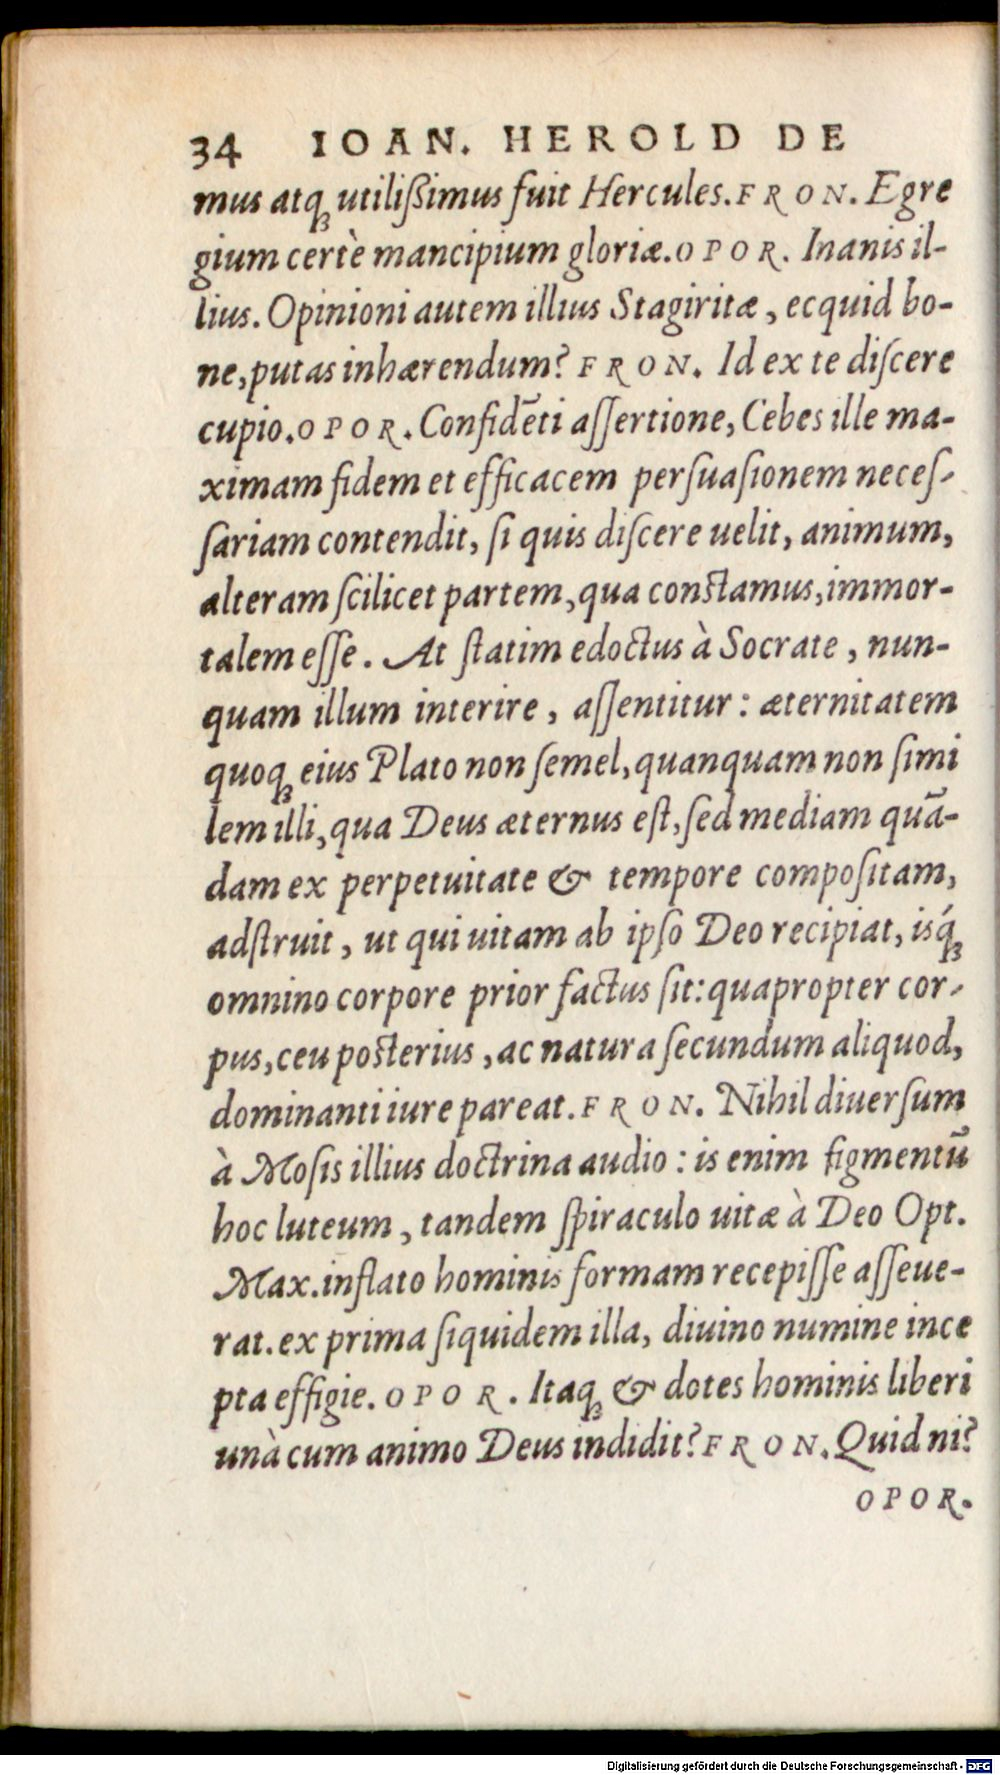 34 IOAN. HEROLD DE
mus atqꝫ utilißimus fuit Hercules. FRON. Egre
gium certè mancipium gloriæ. OPOR. Inanis il-
lius. Opinioni autem illius Stagiritæ, ecquid bo-
ne, putas inhærendum? FRON. Id ex te diſcere
cupio. OPOR. Confidēti aſſertione, Cebes ille ma-
ximam fidem et efficacem perſuaſionem neceſ-
ſariam contendit, ſi quis diſcere uelit, animum,
alteram ſcilicet partem, qua conſtamus, immor-
talem eſſe. At ſtatim edoctus à Socrate, nun-
quam illum interire, aſſentitur: æternitatem
quoqꝫ eius Plato non ſemel, quanquam non ſimi
lem illi, qua Deus æternus eſt, ſed mediam quā-
dam ex perpetuitate & tempore compoſitam,
adſtruit, ut qui uitam ab ipſo Deo recipiat, isq́ꝫ
omnino corpore prior factus ſit: quapropter cor-
pus, ceu poſterius, ac natura ſecundum aliquod,
dominanti iure pareat. FRON. Nihil diuerſum
à Moſis illius doctrina audio: is enim figmentū
hoc luteum, tandem ſpiraculo uitæ à Deo Opt.
Max. inflato hominis formam recepiſſe aſſeue-
rat. ex prima ſiquidem illa, diuino numine ince
pta effigie. OPOR. Itaqꝫ & dotes hominis liberi
unà cum animo Deus indidit? FRON. Quid ni?
OPOR.
Digitalisierung gefördert durch die Deutsche Forschungsgemeinschaft - DFG